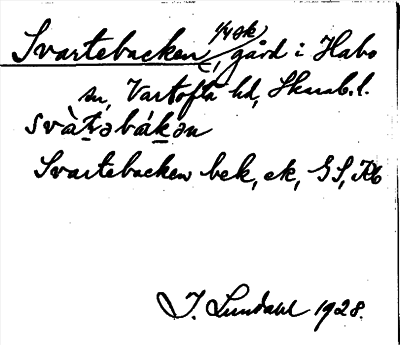 Svartebacken, 1/4 sk, gård i Habo
sn, Vartofta hd, Skarab. l.
svàtəbákən
Svartebacken bek, ek, GS, Kb
J. Lundahl 1928.